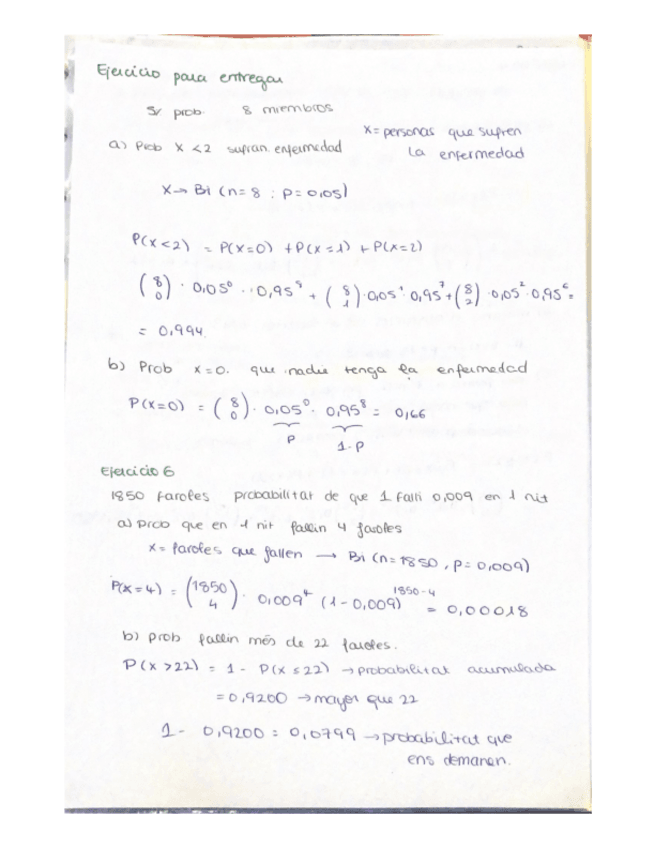 Ejercicio para entregar
5% prob. 8 miembros
x = personas que sufren
a) Prob x < 2 sufran enfermedad
la enfermedad
x → Bi (n = 8 ; p = 0,05)
P(x < 2) = P(x = 0) + P(x = 1) + P(x = 2)
(8 0) · 0,05⁰ · 0,95⁸ + (8 1) · 0,05¹ · 0,95⁷ + (8 2) · 0,05² · 0,95⁶ =
= 0,994.
b) Prob x = 0. que nadie tenga la enfermedad
P(x = 0) = (8 0) · 0,05⁰ · 0,95⁸ = 0,66
P 1-P
Ejercicio 6
1850 faroles probabilitat de que 1 falli 0,009 en 1 nit
a) prob que en 1 nit fallin 4 faroles
x = faroles que fallen → Bi (n = 1850, p = 0,009)
P(x = 4) = (1850 4) · 0,009⁴ (1 - 0,009)¹⁸⁵⁰⁻⁴ = 0,00018
b) prob fallin més de 22 faroles.
P(x > 22) = 1 - P(x ≤ 22) → probabilitat acumulada
= 0,9200 → mayor que 22
1 - 0,9200 = 0,0799 → probabilitat que
ens demanen.